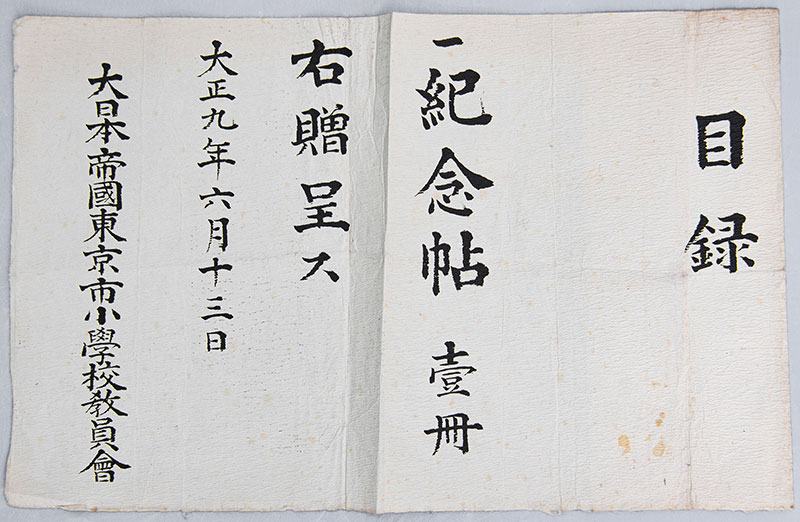 目録
一紀念帖 壹冊
右贈呈ス
大正九年六月十三日
大日本帝國東京市小學校教員會